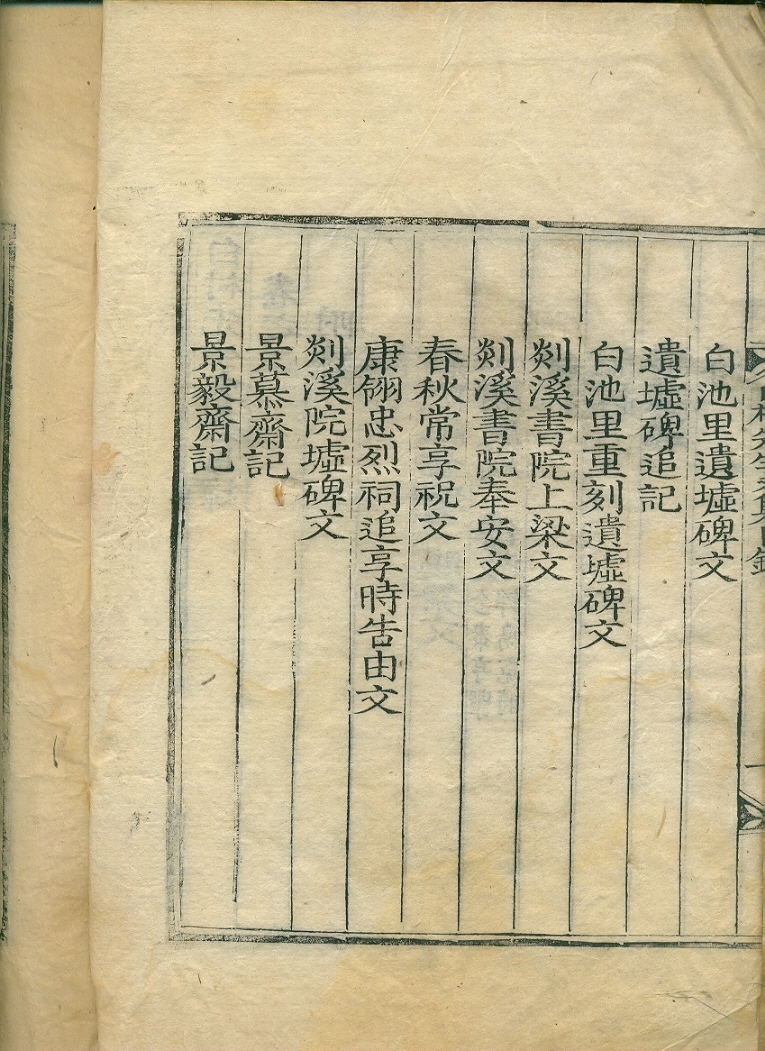 白池里遺墟碑文
遺墟碑追記
白池里重刻遺墟碑文
剡溪書院上梁文
剡溪書院奉安文
春秋常享祝文
康翎忠烈祠追享時告由文
剡溪院墟碑文
景慕齋記
景毅齋記